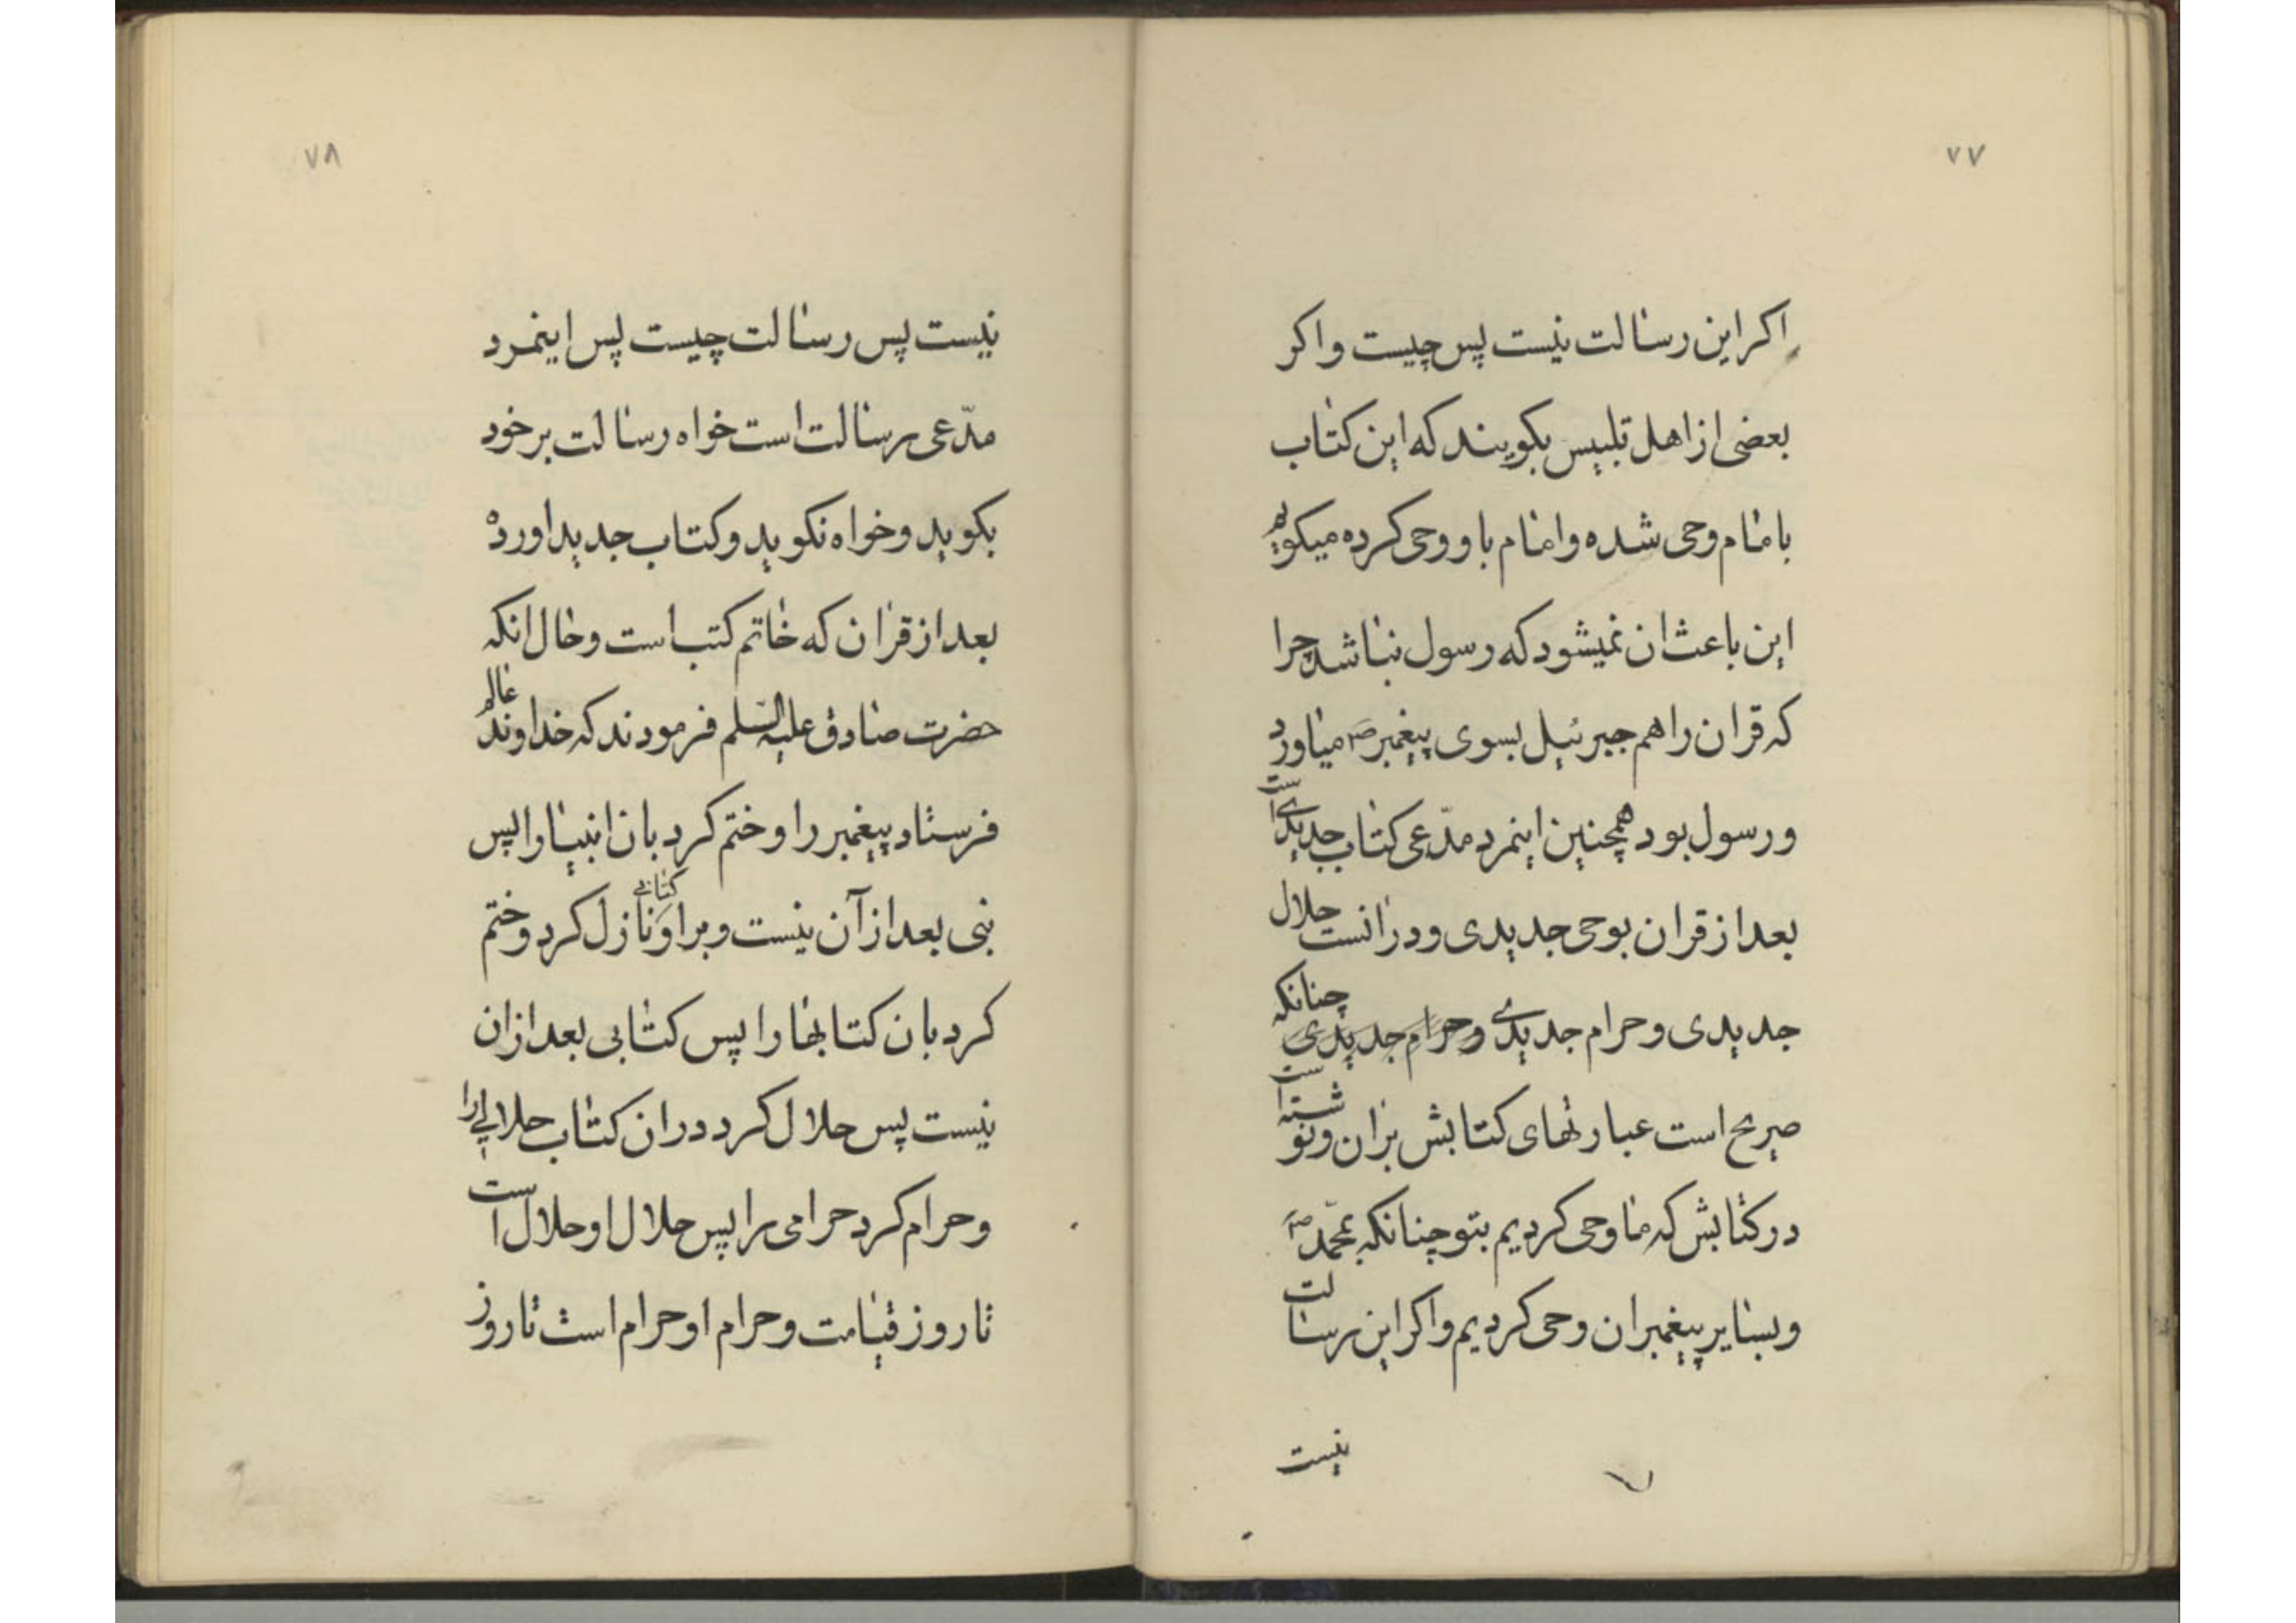 ۷۷
اکر این رسالت نیست پس چیست و اکر
بعضی از اهل تلبیس بکویند که این کتاب
بامام وحی شده و امام باو وحی کرده میکویم
این باعث ان نمیشود که رسول نباشد چرا
که قران را هم جبرئیل بسوی پیغمبر ص میاورد
و رسول بود همچنین اینمرد مدّعی کتاب جدیدی است
بعد از قران بوحی جدیدی و در انست حلال
جدیدی و حرام جدیدی و حرام جدیدی چنانکه
صریح است عبارتهای کتابش بران و نوشته است
در کتابش که ما وحی کردیم بتو چنانکه بمحمّد ص
و بسایر پیغمبران وحی کردیم و اکر این رسالت
نیست
۷۸
نیست پس رسالت چیست پس اینمرد
مدّعی رسالت است خواه رسالت بر خود
بکوید و خواه نکوید و کتاب جدید اورده
بعد از قران که خاتم کتب است و حال انکه
حضرت صادق علیه السّلم فرمودند که خداوند عالم
فرستاد پیغمبر را و ختم کرد بان انبیا را پس
نبی بعد از آن نیست و بر او کتابی نازل کرد و ختم
کرد بان کتابها را پس کتابی بعد از ان
نیست پس حلال کرد در ان کتاب حلالی را
و حرام کرد حرامی را پس حلال او حلال است
تا روز قیامت و حرام او حرام است تا روز